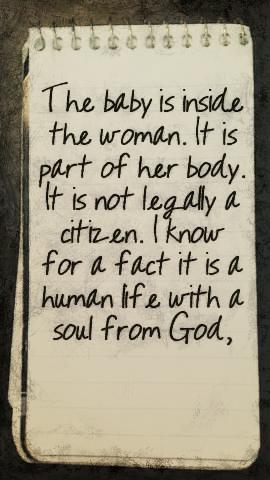 The baby is inside
the woman. It is
part of her body.
It is not legally a
citizen. I know
for a fact it is a
human life with a
soul from God,